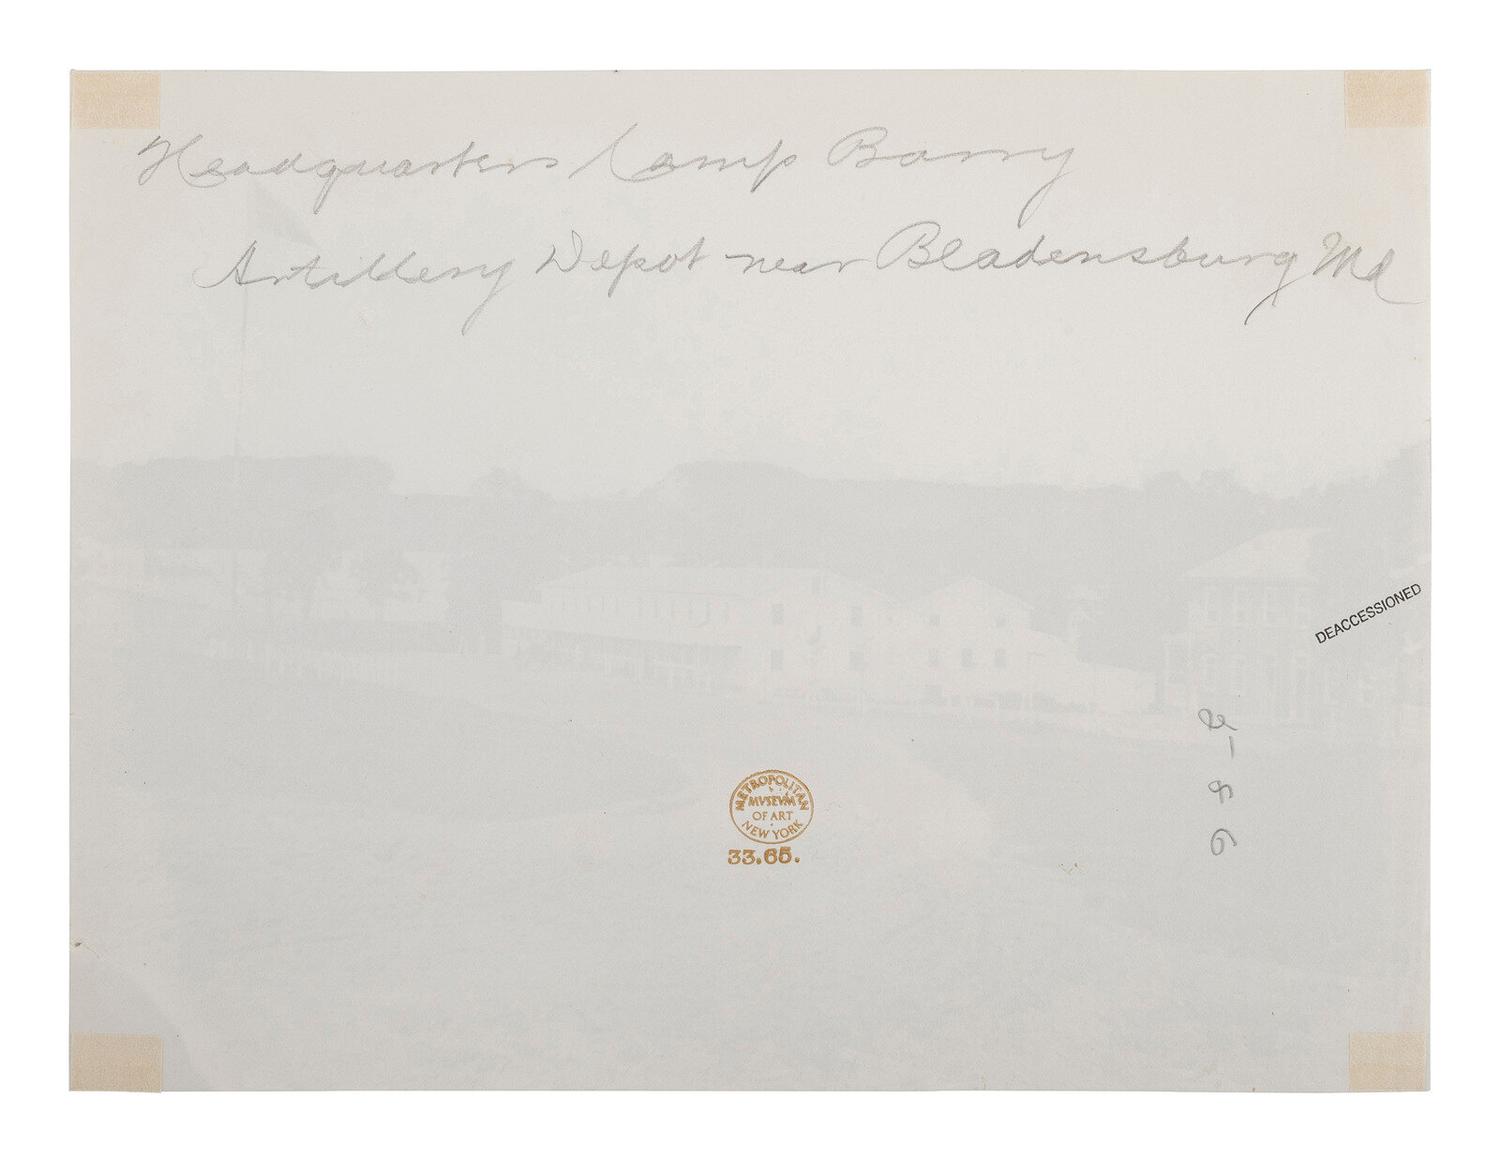 Headquarters Camp Barry
Artillery Depot near Bladensburg Md
DEACCESSIONED
METROPOLITAN
MVSEVM
OF ART
NEW YORK
33.65.